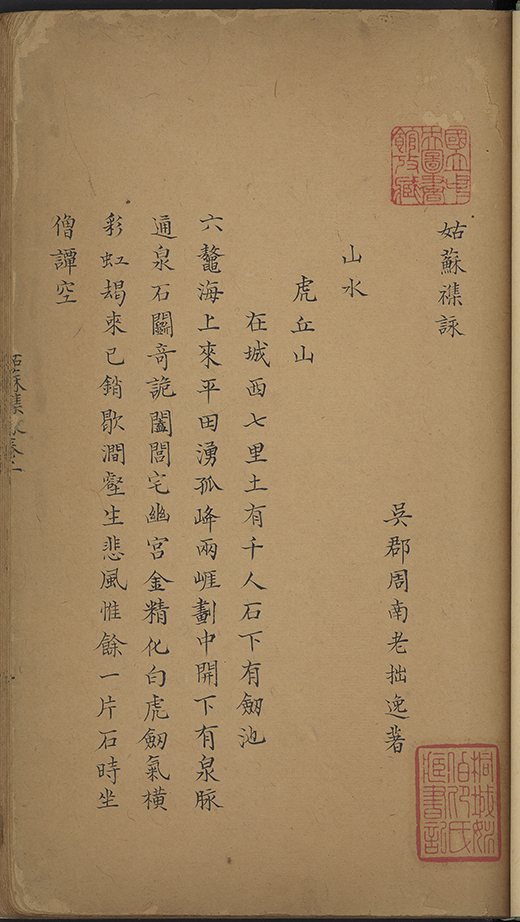 姑蘇襍詠
吳郡周南老拙逸著
山水
虎丘山
在城西七里土有千人石下有劔池
六鼇海上來平田湧孤峰兩崕劃中開下有泉脉
通泉石闢奇詭闔閭宅幽宮金精化白虎劔氣橫
彩虹朅来已銷歇澗壑生悲風惟餘一片石時坐
僧譚空
國立中
央圖書
館收藏
桐城姚
伯卬氏
藏書記